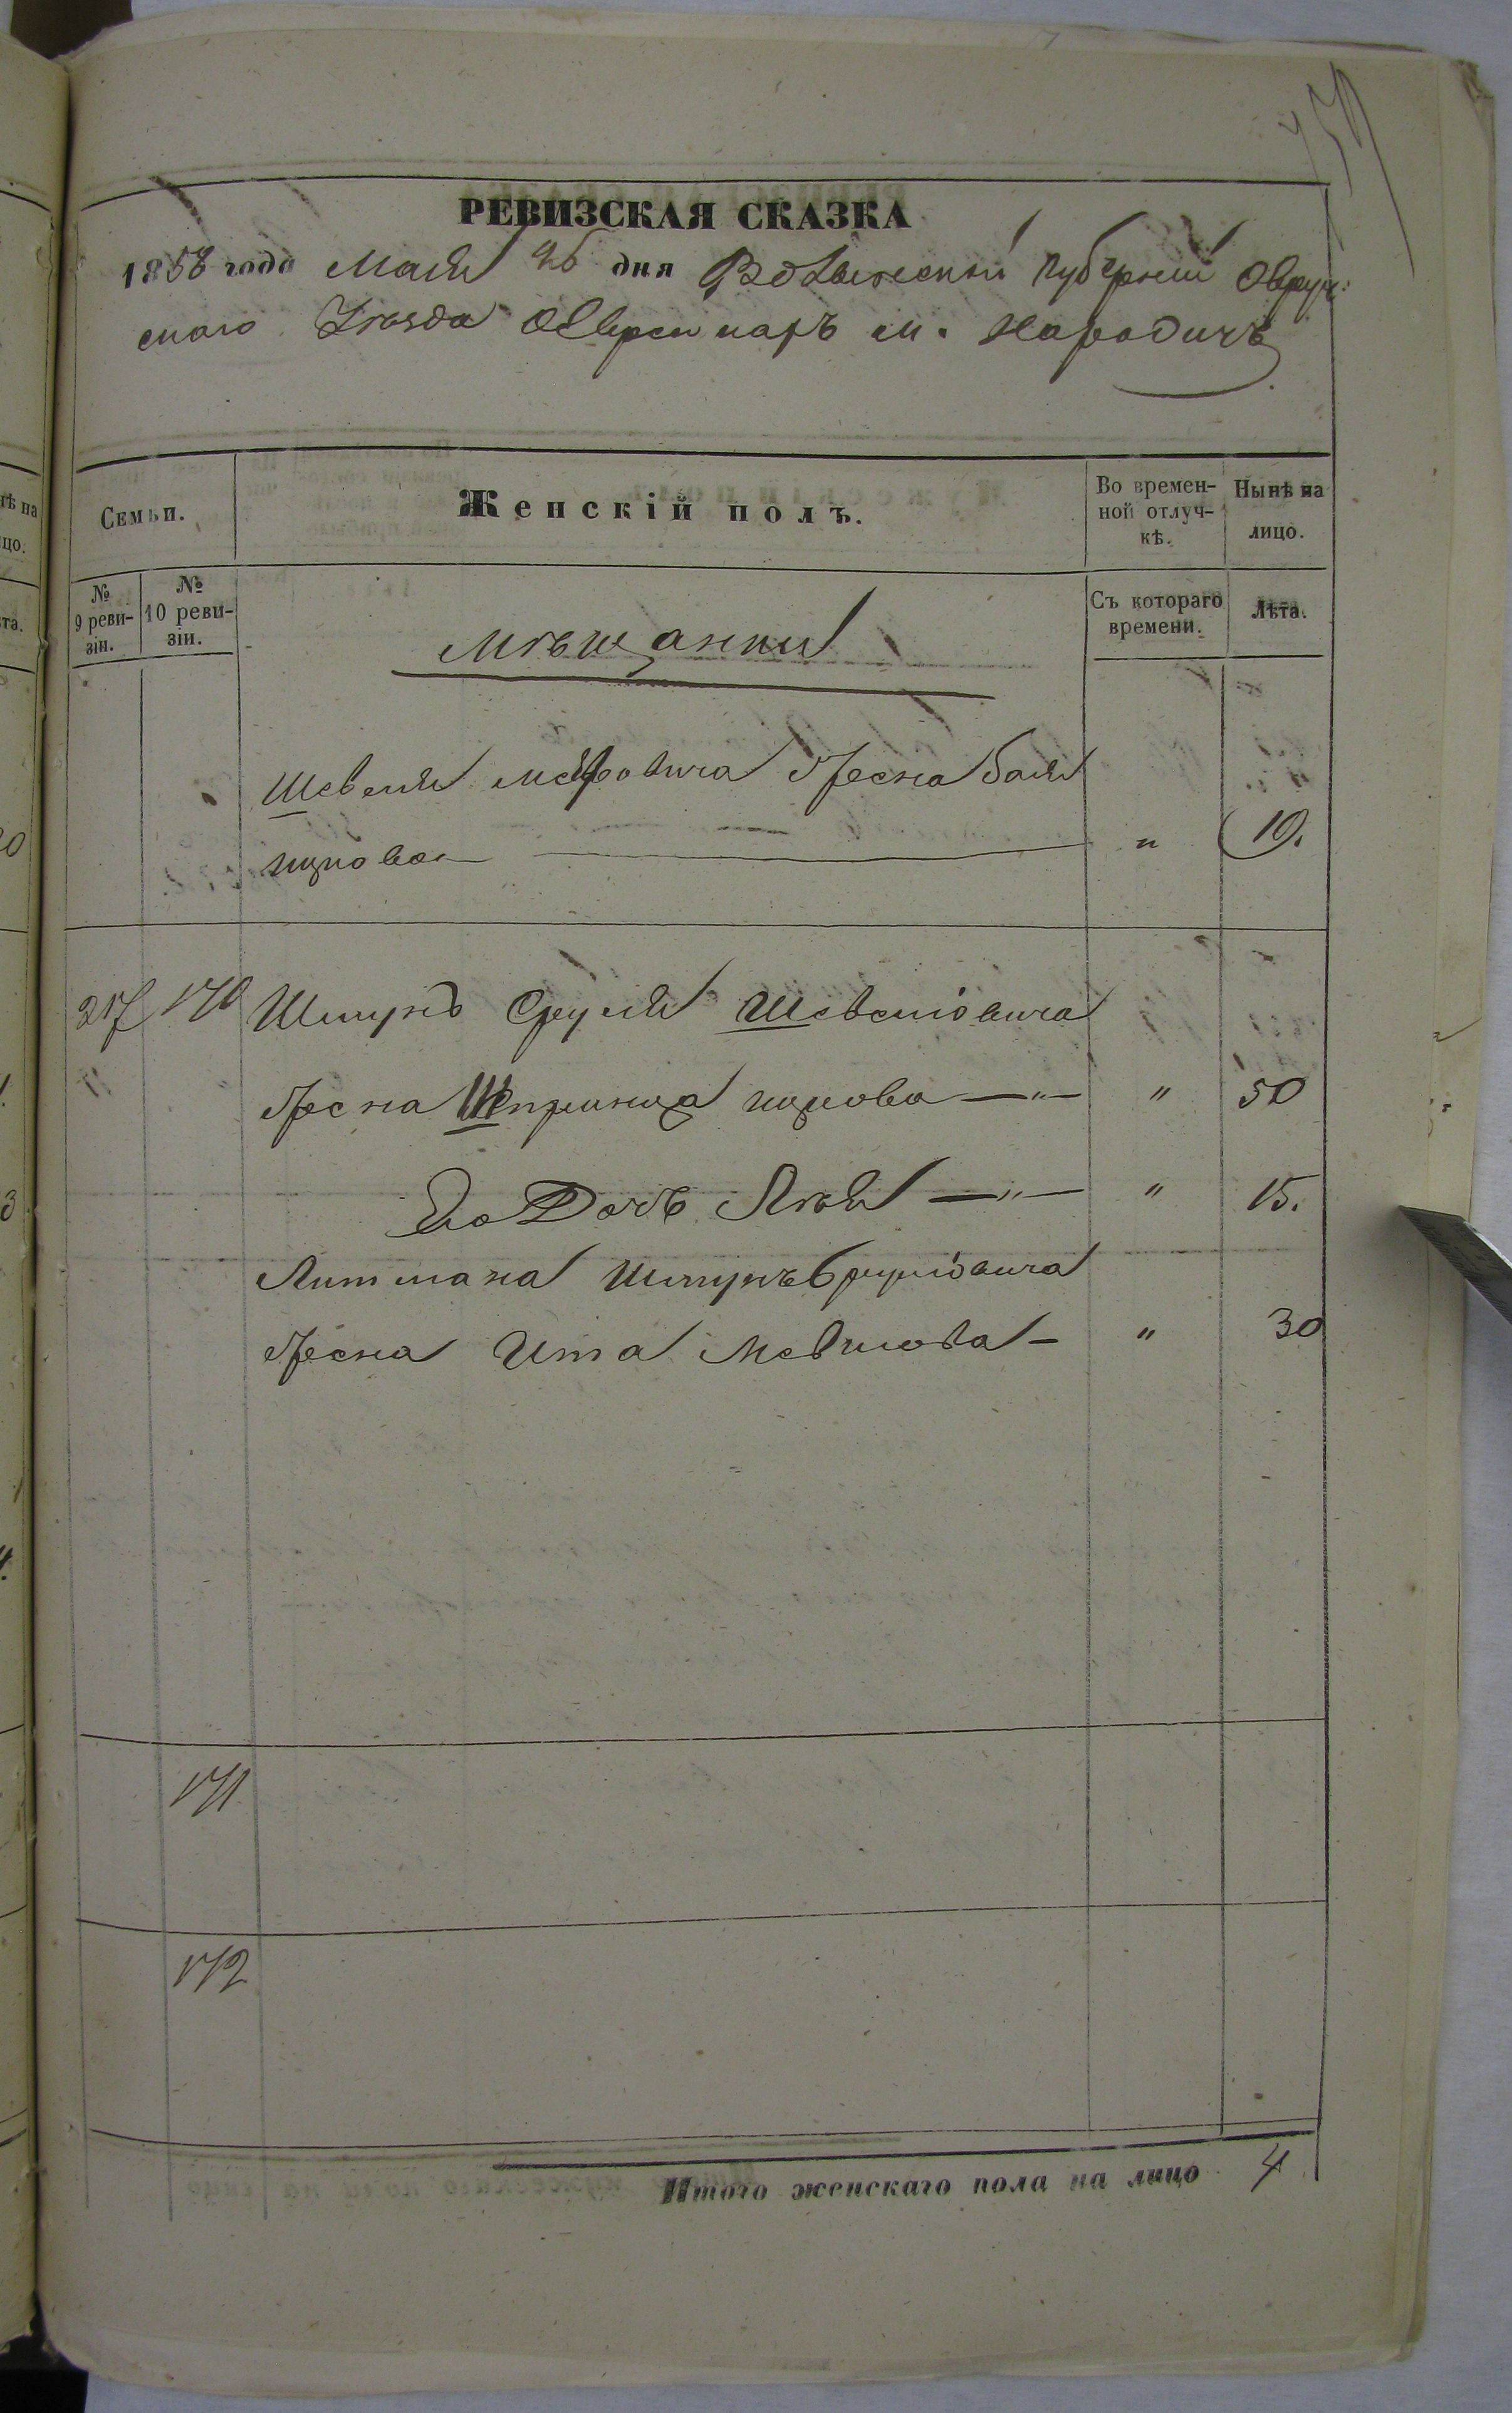 РЕВИЗСКАЯ СКАЗКА
1858 года Мая 26 дня Волынской Губерніи Овруч:
скаго Уѣзда Евреи мѣщ м. Народичъ
Семьи.
Женскій полъ.
Во времен-
ной отлуч-
кѣ.
Нынѣ на
лицо.
№
9 реви-
зіи.
№
10 реви-
зіи.
Съ котораго
времени.
Лѣта.
Мѣщанки
Шевеля Мееровича Жена Бая
" 19.
217 170 Шмунъ Сруля Шевелiовича
Жена " 50
Его Дочь Лея — " — " 15.
Литмана
Жена Ита — " 30
171
172
Итого женскаго пола на лицо 4